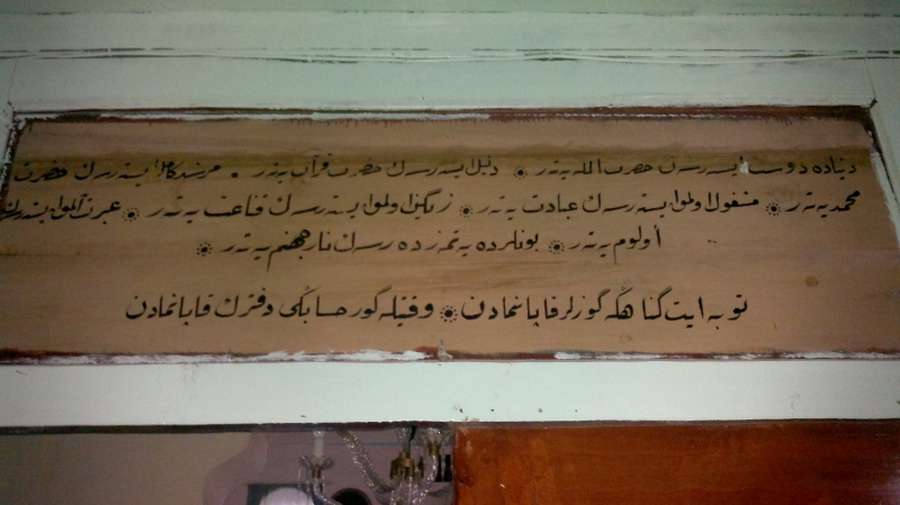 دنیاده دوست ایسترسك حضرت الله یەتر ۞ دلیل ایسترسك حضرت قرآن یەتر ۞ مرشد کامل ایسترسك حضرت
محمد یەتر ۞ مشغول اولموا یسترسك عبادت یەتر ۞ زنگین اولموا یسترسك قناعت یەتر ۞ عبرت آلموا یسترسك
اولوم یەتر ۞ بونلرده یەتمزده رسك نار جهنم یەتر ۞
توبه ایت گناهکه گوزلر قاپانمادن ۞ وقتیله گور حسابکی دفترك قاپانمادن